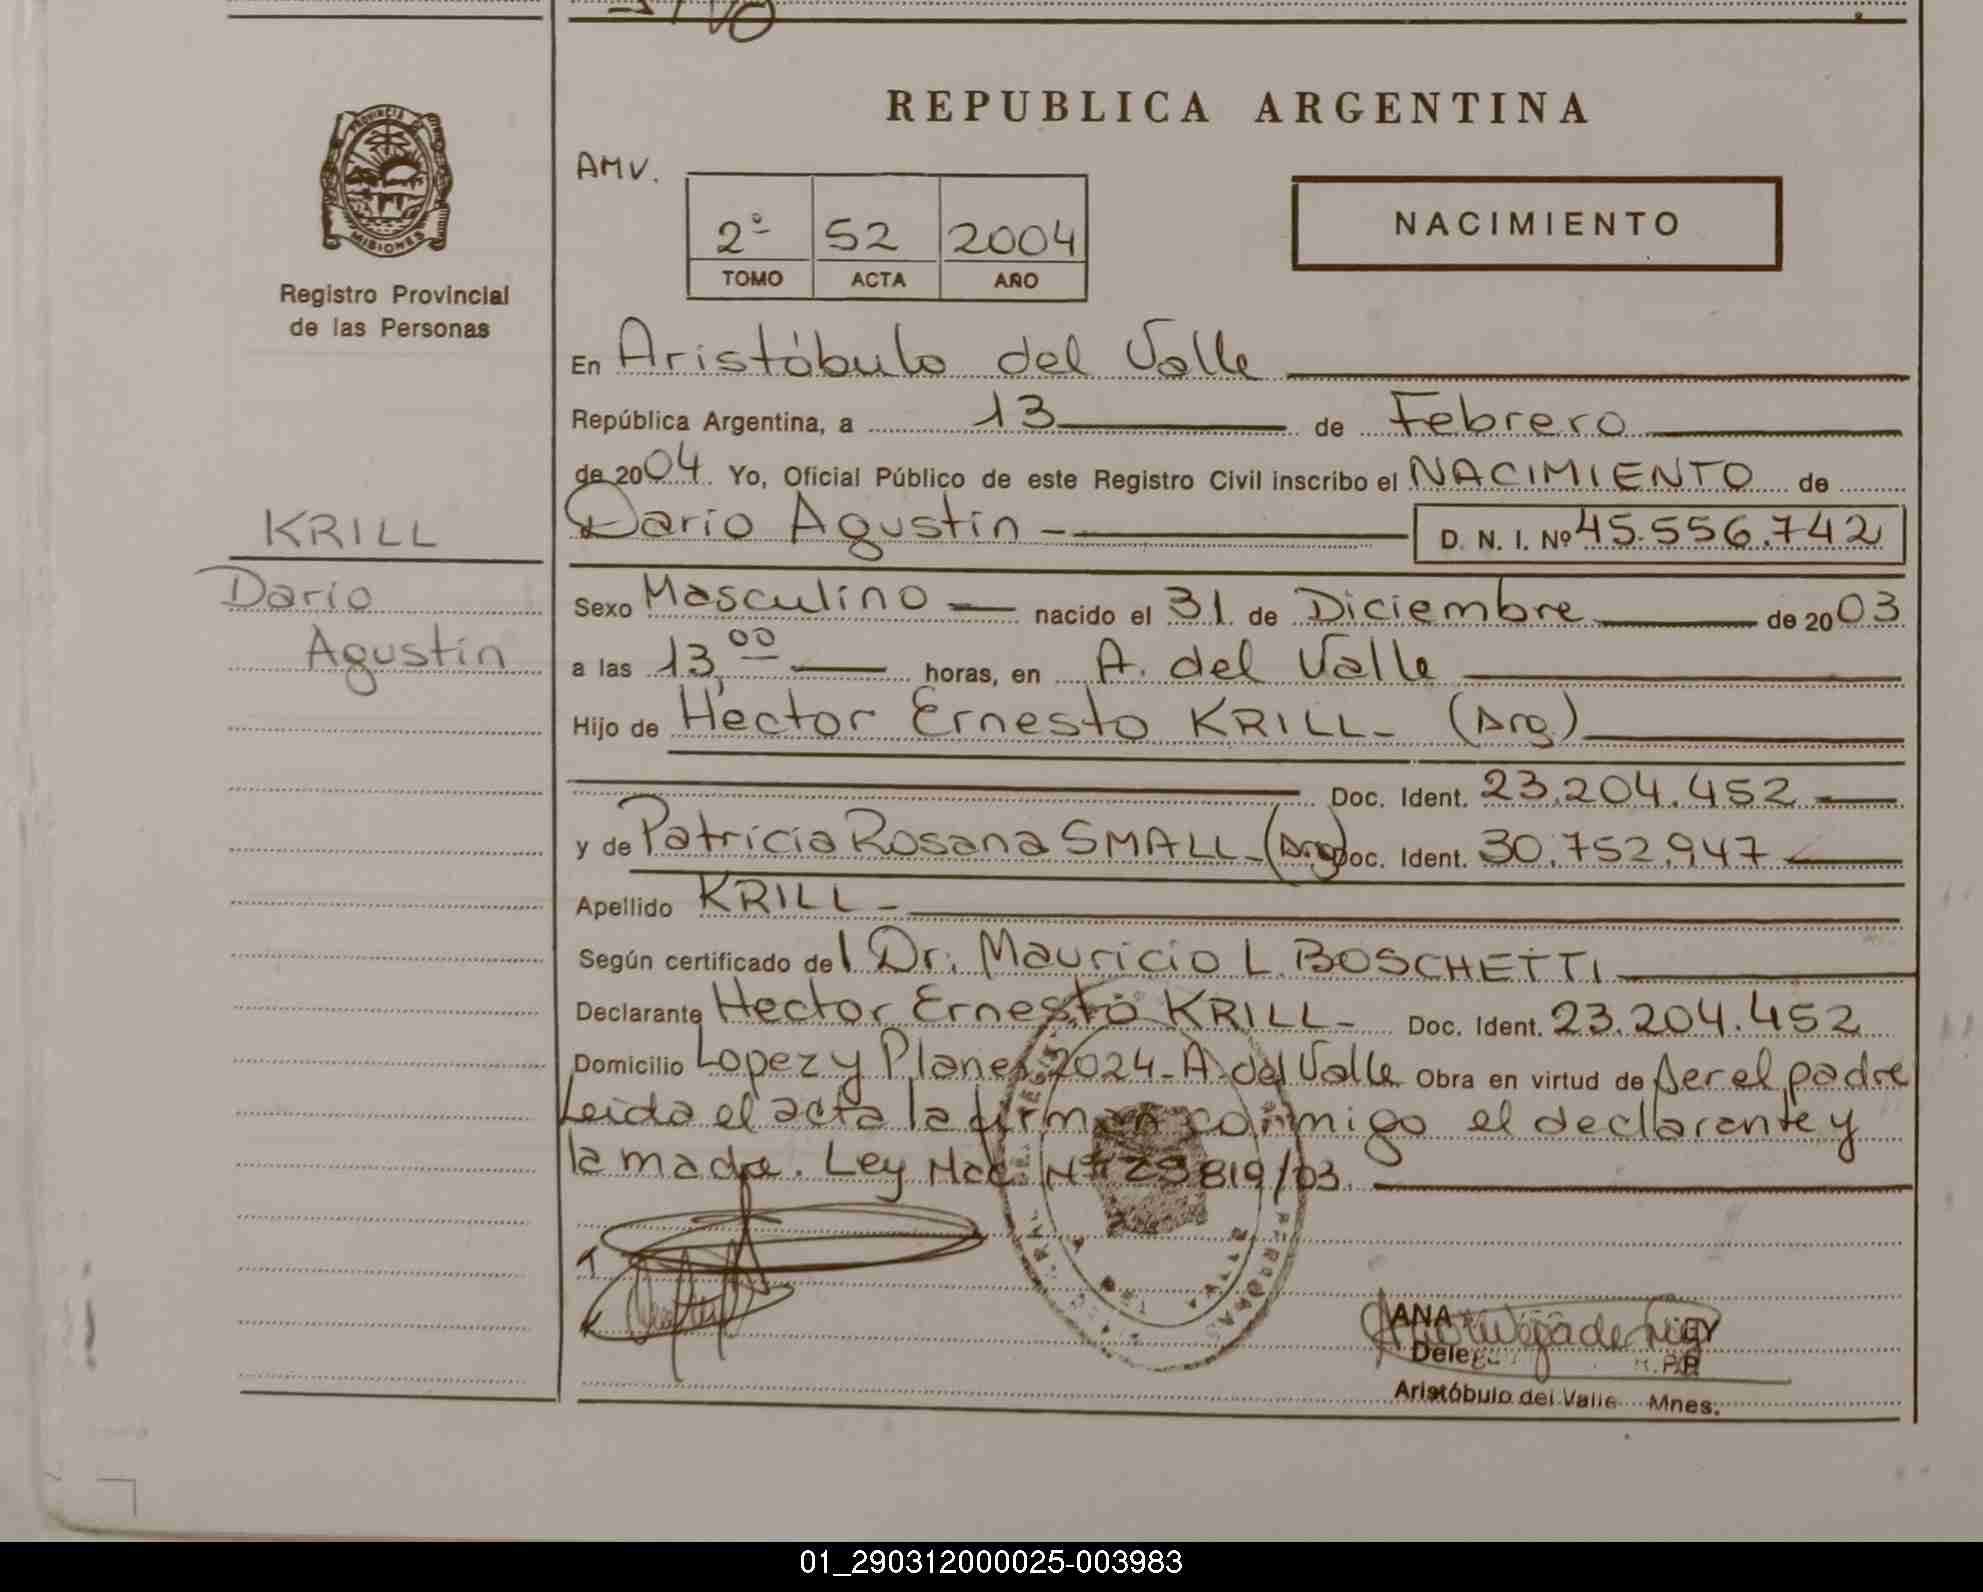 REPUBLICA ARGENTINA
PROVINCIA DE
MISIONES
Registro Provincial
de las Personas
AMV.
2º 52 2004
TOMO ACTA AÑO
NACIMIENTO
En Aristóbulo del Valle
República Argentina, a 13 de Febrero
de 2004 Yo, Oficial Público de este Registro Civil inscribo el NACIMIENTO de
Darío Agustín D. N. I. Nº 45.556.742
KRILL
Darío
Agustín
Sexo Masculino nacido el 31 de Diciembre de 2003
a las 13,00 horas, en A. del Valle
Hijo de Héctor Ernesto KRILL (Arg)
Doc. Ident. 23.204.452
y de Patricia Rosana SMALL (Arg) Doc. Ident. 30.752.947
Apellido KRILL
Según certificado del Dr. Mauricio L. BOSCHETTI
Declarante Hector Ernesto KRILL Doc. Ident. 23.204.452
Domicilio Lopez y Planes 2024 - A. del Valle Obra en virtud de ser el padre
Leída el acta la firman conmigo el declarante y
la madre. Ley Nac. Nº 25819/03.
ANA
Aristóbulo del Valle Mnes.
01_290312000025-003983